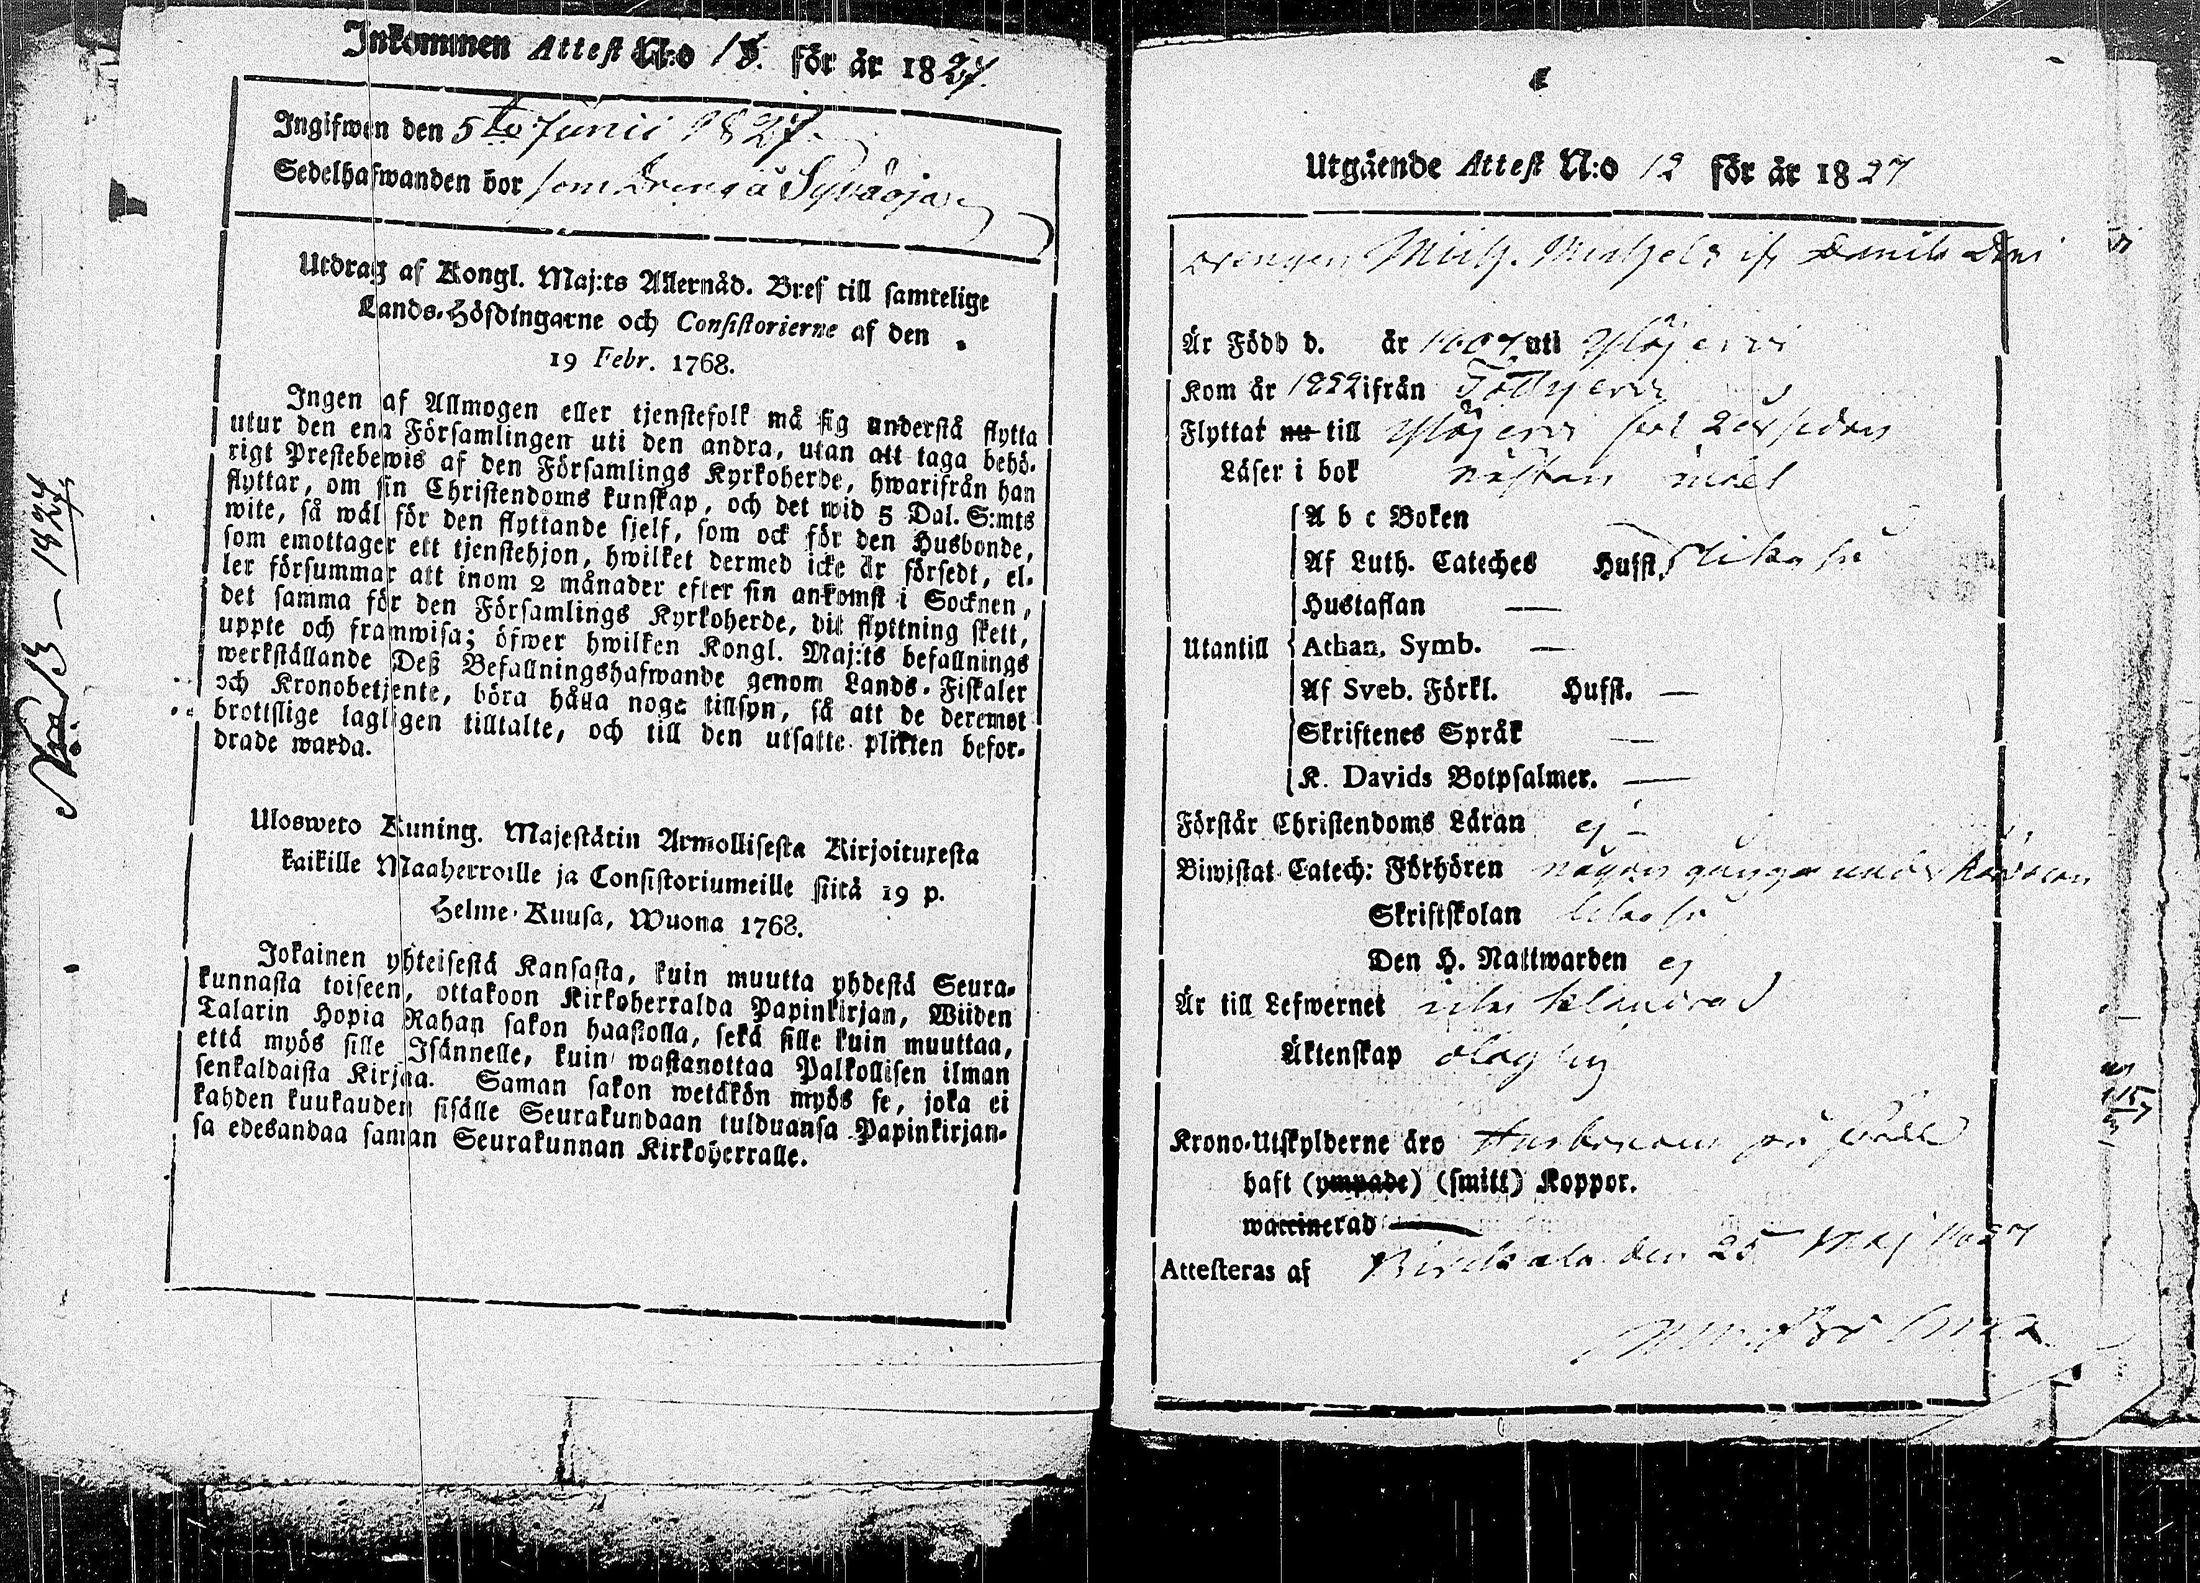 Inkommen Attest N:o 13. för år 1827.
Ingifwen den 5te Junii 1827.
Sedelhafwanden bor som Dreng å Syväoja
Utdrag af Kongl. Maj:ts Allernåd. Bref till samtelige
Lands-Höfdingarne och Consistorierne af den
19 Febr. 1768.
Ingen af Allmogen eller tjenstefolk må sig understå flytta
utur den ena Församlingen uti den andra, utan att taga behö-
rigt Prestebewis af den Församlings Kyrkoherde, hwarifrån han
flyttar, om sin Christendoms kunskap, och det wid 5 Dal. S:mts
wite, så wäl för den flyttande sjelf, som ock för den Husbonde,
som emottager ett tjenstehjon, hwilket dermed icke är försedt, el-
ler försummar att inom 2 månader efter sin ankomst i Socknen,
det samma för den Församlings Kyrkoherde, dit flyttning skett,
uppte och framwisa; öfwer hwilken Kongl. Maj:ts befallnings
werkställande Deß Befallningshafwande genom Lands-Fiskaler
och Kronobetjente, böra hålla noga tillsyn, så att de deremot
brottslige lagligen tilltalte, och till den utsatte plikten befor-
drade warda.
Ulosweto Kuning. Majestätin Armollisesta Kirjoituxesta
kaikille Maaherroille ja Consistoriumeille siitä 19 p.
Helme-Kuusa, Wuona 1768.
Jokainen yhteisestä Kansasta, kuin muutta yhdestä Seura-
kunnasta toiseen, ottakoon Kirkoherralda Papinkirjan, Wiiden
Talarin Hopia Rahan sakon haastolla, sekä sille kuin muuttaa,
että myös sille Isännelle, kuin wastanottaa Palkollisen ilman
senkaldaista Kirjaa. Saman sakon wetäkön myös se, joka ei
kahden kuukauden sisälle Seurakundaan tulduansa Papinkirjan-
sa edesandaa saman Seurakunnan Kirkoherralle.
No 13 — 1827
Utgående Attest N:o 12 för år 1827
Drengen Mich. Michels
Är Född d. år 1807 uti Ylöjervi
Kom år 1822 ifrån Tottijervi
Flyttat nu till Ylöjervi
Läser i bok nästan
Utantill
A b c Boken
Af Luth. Cateches Husst. lika så
Hustaflan —
Athan. Symb. —
Af Sveb. Förkl. Husst. —
Skriftenes Språk —
K. Davids Botpsalmer. —
Förstår Christendoms Läran ej
Biwistat Catech: Förhören någon gång
Skriftskolan lika så
Den H. Nattwarden ej
Är till Lefwernet icke klandrad
Äktenskap olaglig
Krono-Utskylderne äro Husbonden på
haft (ympade) (smitt) Koppor.
waccinerad —
Attesteras af Birckala den 25 Maj 1827